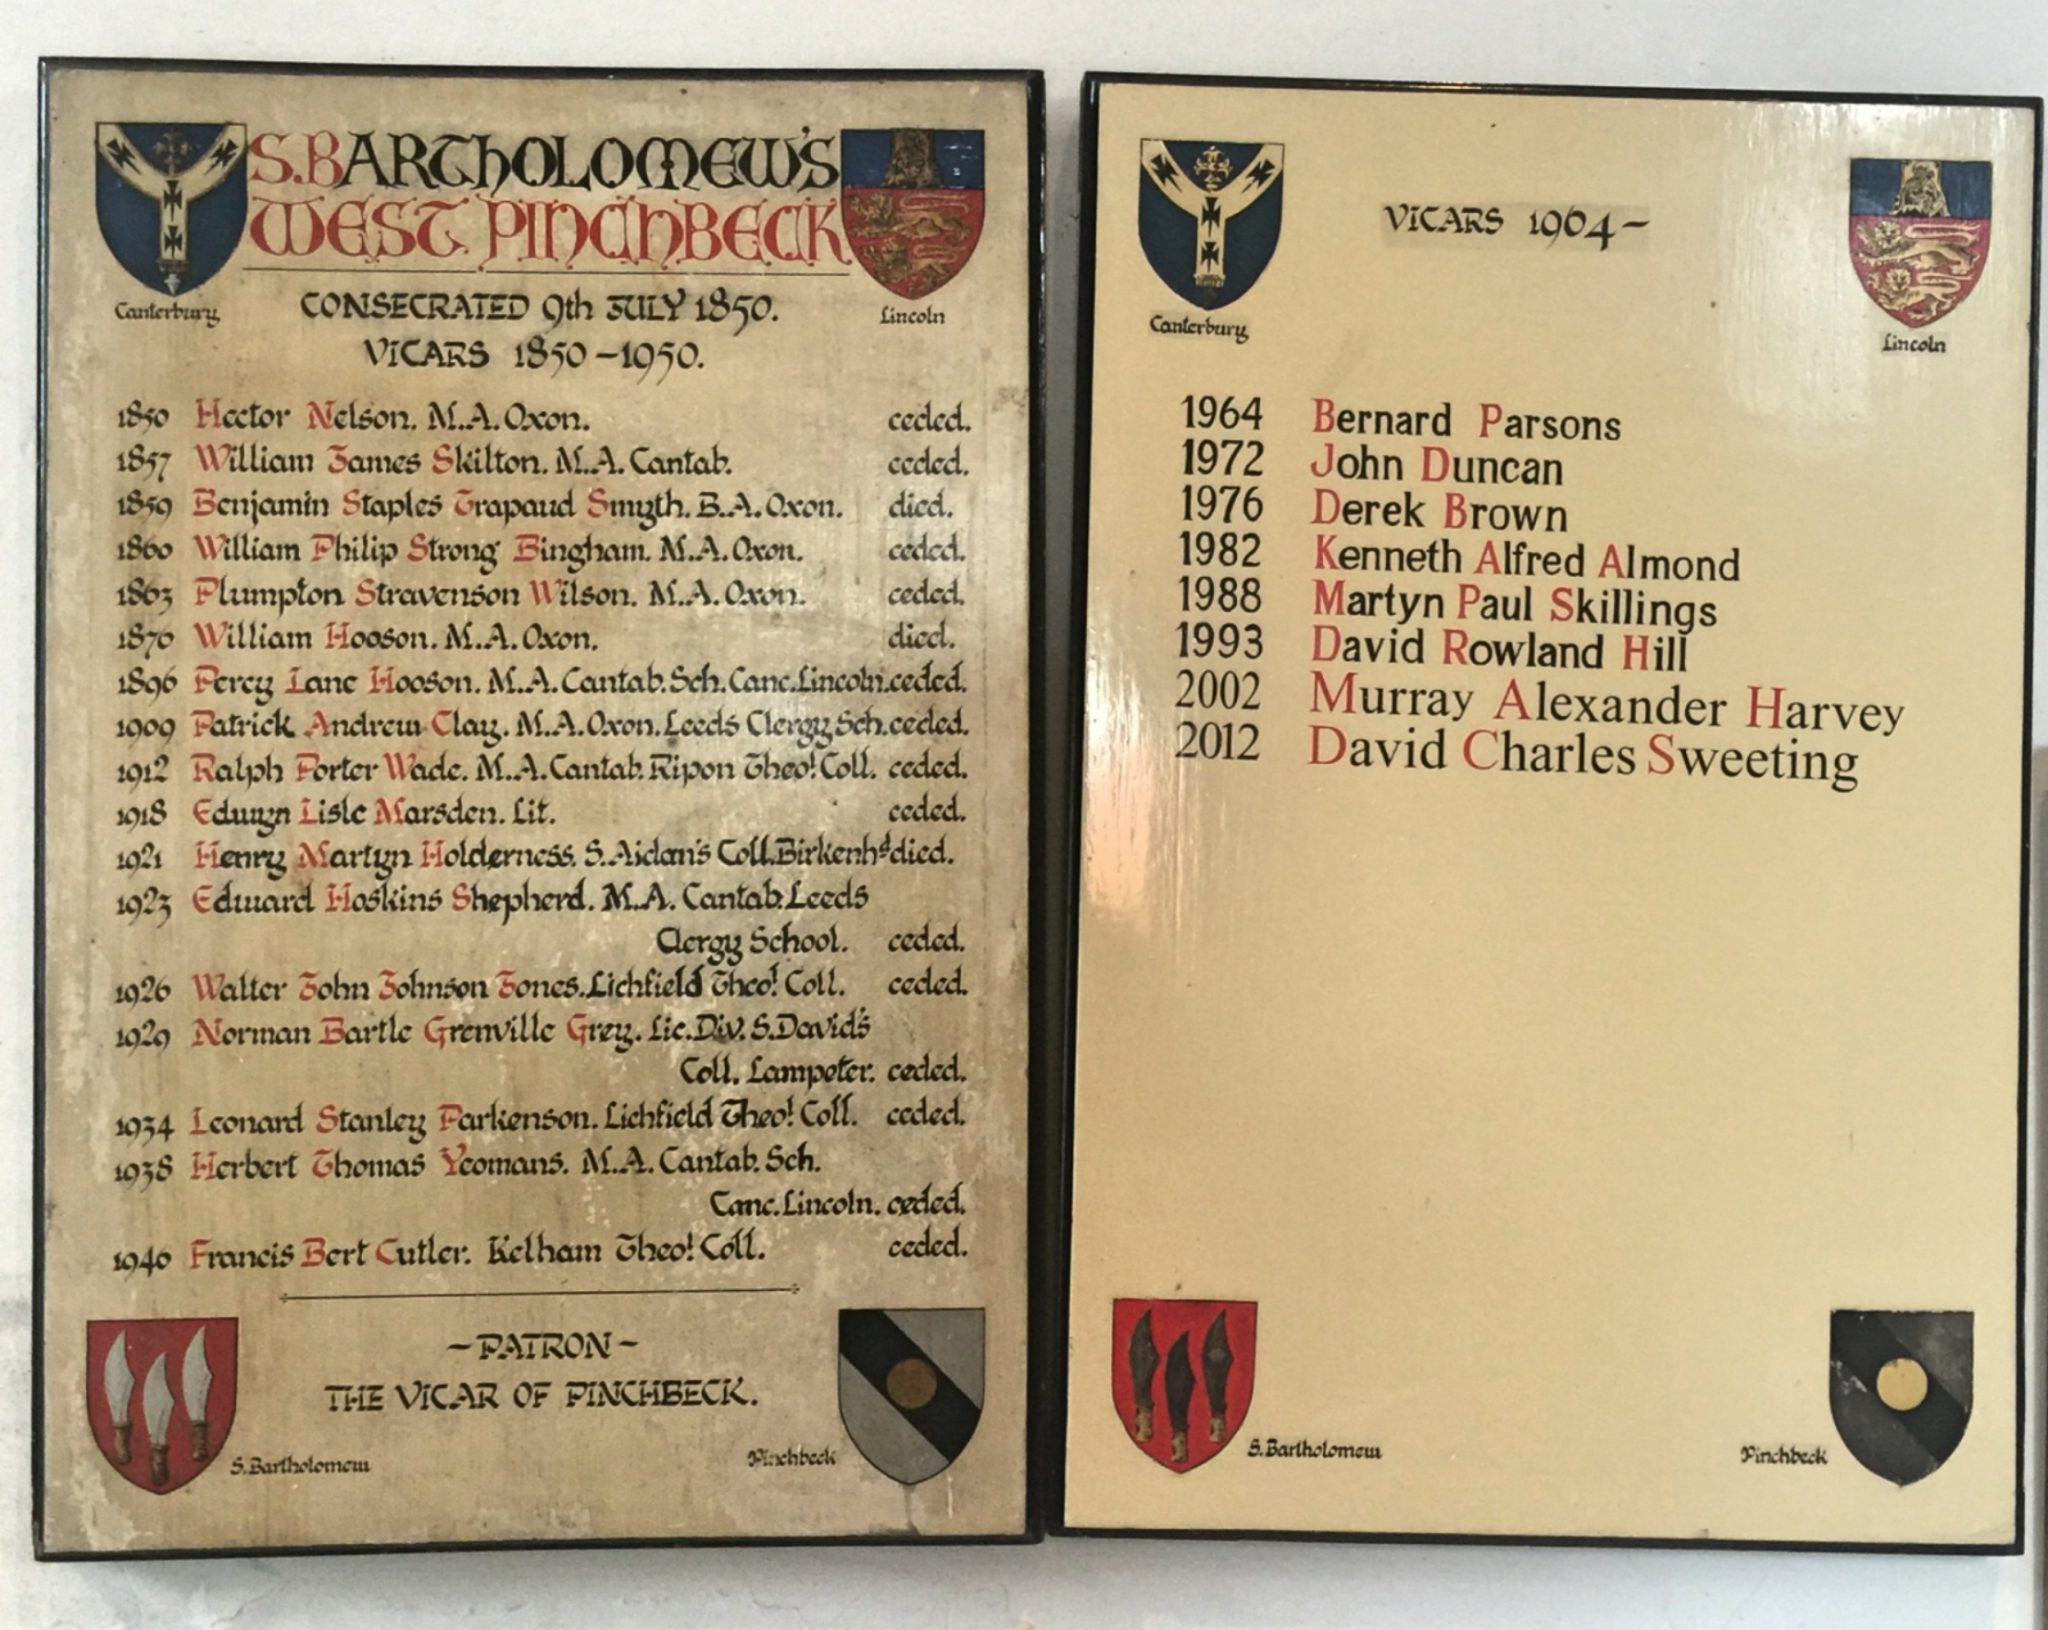 S. BARTHOLOMEW'S
WEST PINCHBECK
Canterbury
Lincoln
CONSECRATED 9th JULY 1850.
VICARS 1850-1950.
1850 Hector Nelson. M.A. Oxon. ceded.
1857 William James Skilton. M.A. Cantab. ceded.
1859 Benjamin Staples Trapaud Smyth. B.A. Oxon. died.
1860 William Philip Strong Bingham. M.A. Oxon. ceded.
1863 Plumpton Stravenson Wilson. M.A. Oxon. ceded.
1876 William Hooson. M.A. Oxon. died.
1896 Percy Lane Hooson. M.A. Cantab. Sch. Canc. Lincoln. ceded.
1909 Patrick Andrew Clay. M.A. Oxon. Leeds Clergy Sch. ceded.
1912 Ralph Porter Wade. M.A. Cantab. Ripon Theol Coll. ceded.
1918 Edwyn Lisle Marsden. Lit. ceded.
1921 Henry Martyn Holderness. S. Aidan's Coll. Birkenhd died.
1923 Edward Hoskins Shepherd. M.A. Cantab. Leeds
Clergy School. ceded.
1926 Walter John Johnson Jones. Lichfield Theol Coll. ceded.
1929 Norman Bartle Grenville Grey. Lic. Div. S. David's
Coll. Lampeter. ceded.
1934 Leonard Stanley Parkenson. Lichfield Theol Coll. ceded.
1938 Herbert Thomas Yeomans. M.A. Cantab. Sch.
Canc. Lincoln. ceded.
1946 Francis Bert Cutler. Kelham Theol Coll. ceded.
- PATRON -
THE VICAR OF PINCHBECK.
S. Bartholomew
Pinchbeck
VICARS 1964-
Canterbury
Lincoln
1964 Bernard Parsons
1972 John Duncan
1976 Derek Brown
1982 Kenneth Alfred Almond
1988 Martyn Paul Skillings
1993 David Rowland Hill
2002 Murray Alexander Harvey
2012 David Charles Sweeting
S. Bartholomew
Pinchbeck